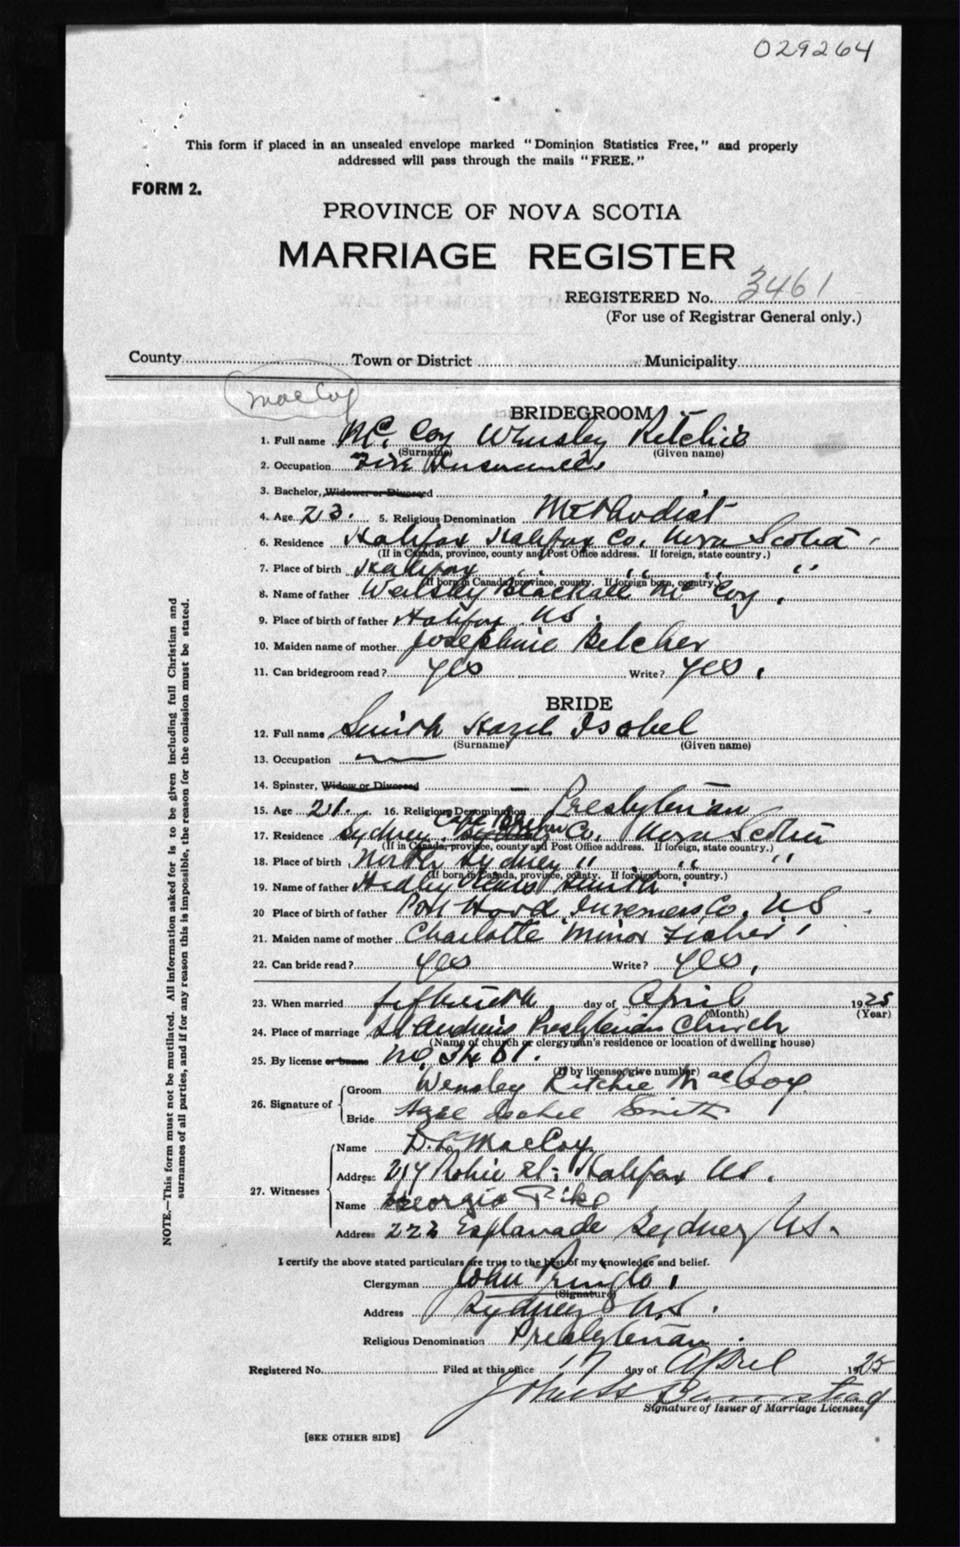 029264
This form if placed in an unsealed envelope marked "Dominion Statistics Free," and properly
addressed will pass through the mails "FREE."
FORM 2.
PROVINCE OF NOVA SCOTIA
MARRIAGE REGISTER
REGISTERED No. 3461
(For use of Registrar General only.)
County Town or District Municipality
MacCoy
BRIDEGROOM
1. Full name Mc Coy Wensley Ritchie
(Surname) (Given name)
2. Occupation Fire Insurance
3. Bachelor, Widower or Divorced
4. Age 23. 5. Religious Denomination Methodist
6. Residence Halifax Halifax Co. Nova Scotia
(If in Canada, province, county and Post Office address. If foreign, state country.)
7. Place of birth Halifax " " "
(If born in Canada, province, county. If foreign born, country.)
8. Name of father Wensley Blackall Mc Coy.
9. Place of birth of father Halifax NS.
10. Maiden name of mother Josephine Belcher
11. Can bridegroom read? yes Write? yes.
BRIDE
12. Full name Smith Hazel Isobel
(Surname) (Given name)
13. Occupation
14. Spinster, Widow or Divorced
15. Age 21. 16. Religious Denomination Presbyterian
17. Residence Sydney Cape Breton Co. Nova Scotia
(If in Canada, province, county and Post Office address. If foreign, state country.)
18. Place of birth North Sydney " " "
(If born in Canada, province, county. If foreign born, country.)
19. Name of father Hedley Smith
20 Place of birth of father Port Hood Inverness Co. NS
21. Maiden name of mother Charlotte Minor Fisher
22. Can bride read? yes Write? yes,
23. When married fifteenth day of April 1925
(Month) (Year)
24. Place of marriage St Andrews Presbyterian Church
(Name of church or clergyman's residence or location of dwelling house)
25. By license or banns No. 3461.
(If by license, give number)
26. Signature of Groom Wensley Ritchie MacCoy
Bride Hazel Isobel Smith
27. Witnesses Name D.L. MacCoy
Address 214 Robie St; Halifax NS.
Name Georgia Pike
Address 223 Esplanade Sydney NS.
I certify the above stated particulars are true to the best of my knowledge and belief.
Clergyman John Pringle.
(Signature)
Address Sydney N.S.
Religious Denomination Presbyterian.
Registered No. Filed at this office 17 day of April 1925
Signature of Issuer of Marriage Licenses
[SEE OTHER SIDE]
NOTE.—This form must not be mutilated. All information asked for is to be given including full Christian and
surnames of all parties, and if for any reason this is impossible, the reason for the omission must be stated.